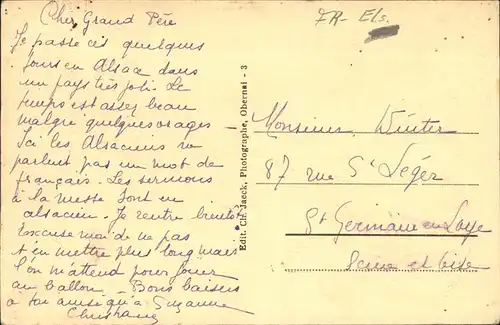 Cher Grand Père
Je passe ces quelques
jours en Alsace dans
un pays très joli. Le
temps est assez beau
malgré quelques orages -
Ici les Alsaciens ne
parlent pas un mot de
français. Les sermons
à la messe sont en
alsacien. Je rentre bientôt
Excuse moi de ne pas
t'en mettre plus long mais
l'on m'attend pour jouer
au ballon. Bons baisers
à toi ainsi qu'à Suzanne
FR- Els.
Edit. Ch. Jaeck, Photographe, Obernai - 3
Monsieur Winter
87 rue St Léger
St Germain en Laye
Seine et Oise